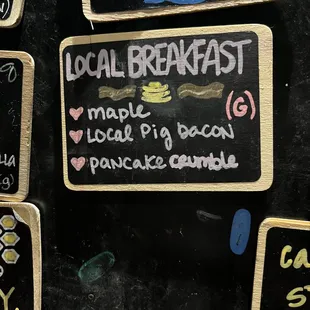 LOCAL BREAKFAST
maple (G)
Local Pig bacon
pancake crumble